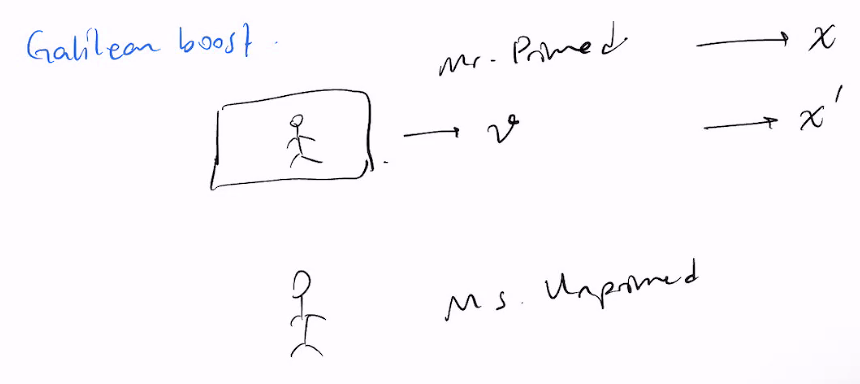 Galilean boost.
Mr. Primed → x
→ v → x'
Ms. Unprimed